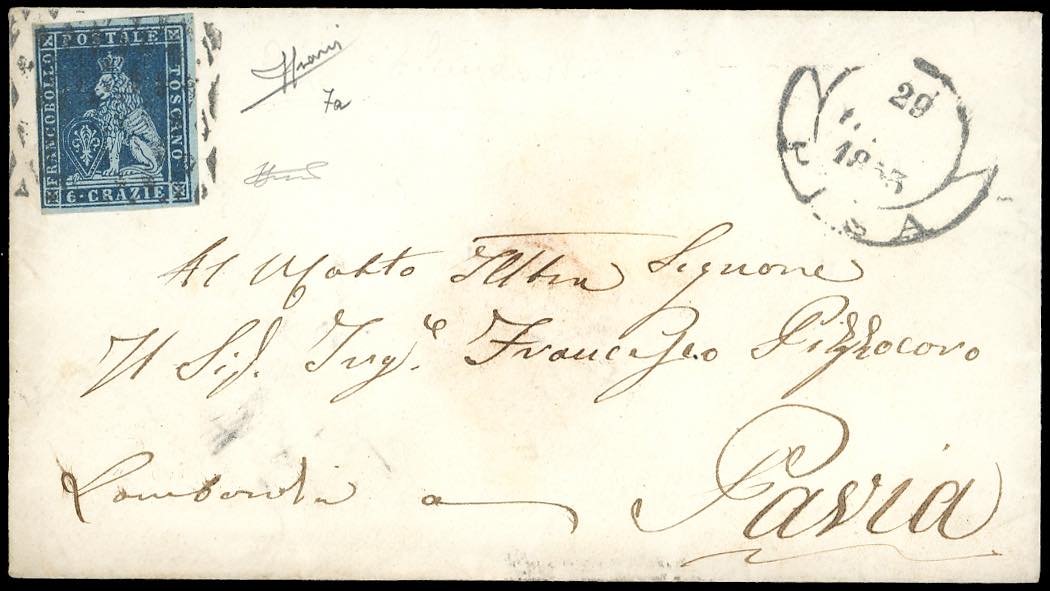 FRANCOBOLLO
POSTALE
TOSCANO
6·CRAZIE
7a
29
1853
PISA
Al Molto Illtre Signore
Il Sig. Inge. Francesco Pizzocaro
Lombardia a
Pavia